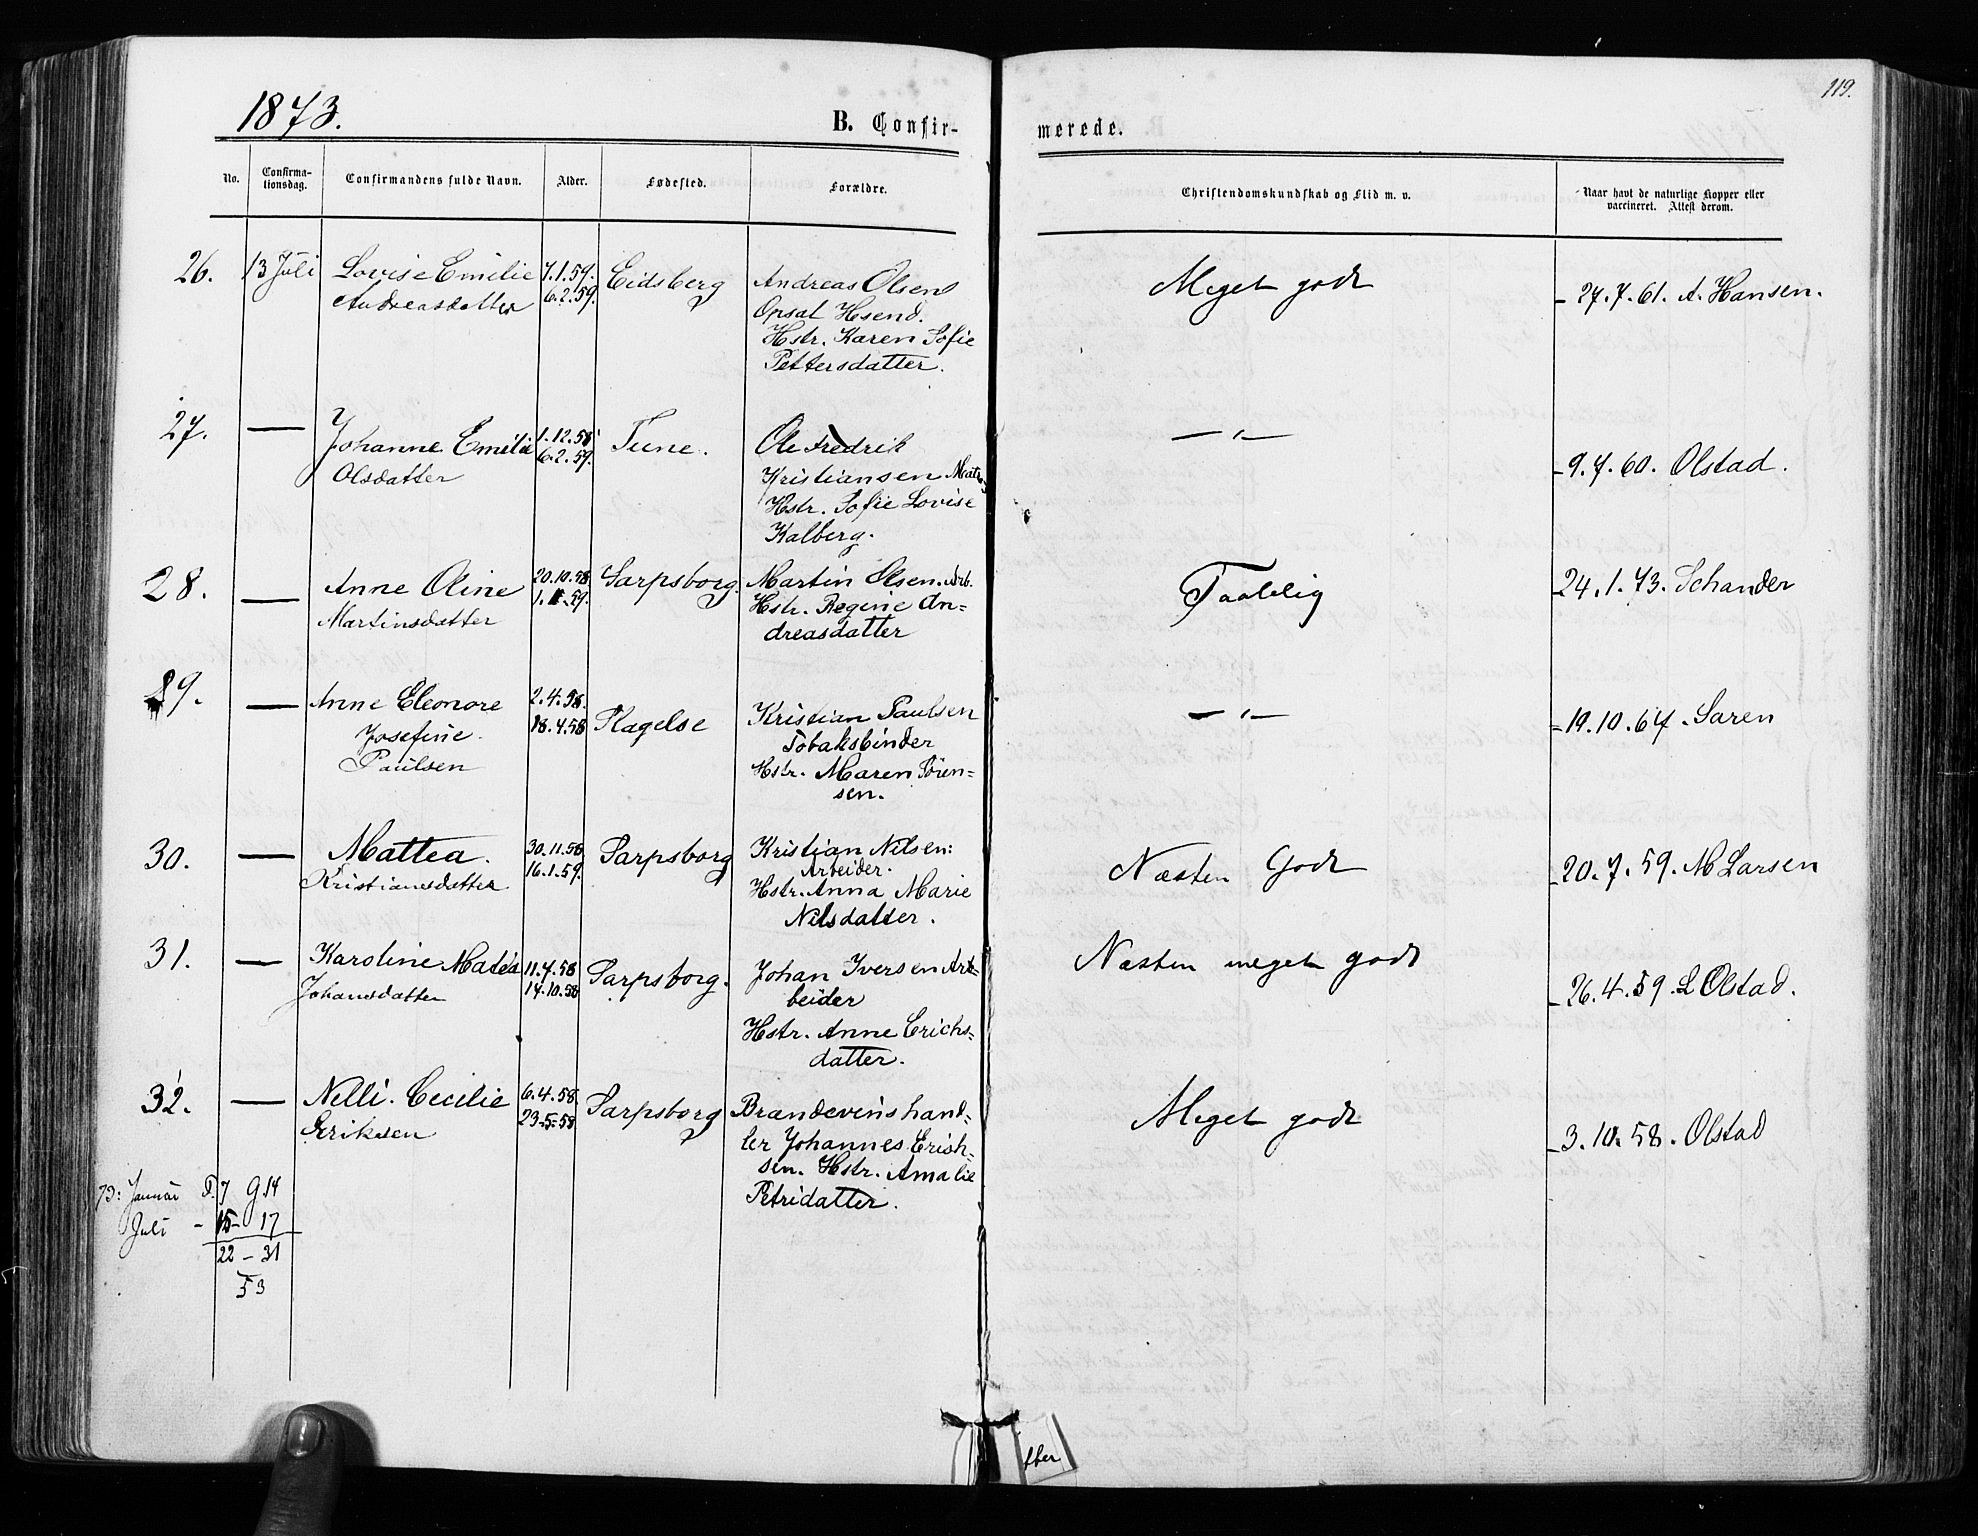 119.
1873.
B. Confir- merede.
No. Confirma-tionsdag. Confirmandens fulde Navn. Alder. Fødested. Forældre. Christendomskundskab og Flid m. v. Naar havt de naturlige Kopper eller vaccineret. Attest derom.
26. 13 Juli Lovise Emilie 7.1.59. Eidsberg Andreas Olsen Meget godt - 27.7.61. A. Hansen.
Andreasdatter 6.2.59. Opsal Hsend.
Hstr. Karen Sofie
Pettersdatter.
27. — Johanne Emilie 1.12.58 Tune. Ole Fredrik — " —
Olsdatter 6.2.59. Kristiansen Matr. - 9.7.60. Olstad.
Hstr. Sofie Lovise
Kalberg.
28. — Anne Oline 20.10.58 Sarpsborg. Martin Olsen. Arb. Taalelig - 24.1.73. Schander
Martinsdatter 1.1.59. Hstr. Regine An=
dreasdatter
29. — Anne Eleonore 2.4.58. Slagelse Kristian Paulsen — " — - 19.10.67. Saren
Josefine 18.4.58 Tobaksbinder
Paulsen Hstr. Maren Sören=
sen.
30. — Mattea. 30.11.58 Sarpsborg Kristian Nilsen: Næsten Godt - 20.7.59. M Larsen
Kristiansdatter 16.1.59. Arbeider.
Hstr. Anna Marie
Nilsdatter.
31. — Karoline Matea 11.7.58 Sarpsborg. Johan Iversen Ar= Næsten meget godt
Johansdatter 17.10.58 beider - 26.4.59. L Olstad.
Hstr. Anne Erichs=
datter.
32. — Nelli. Cecilie 6.4.58. Sarpsborg Brændevinshand= Meget godt
Eriksen 23-5-58 ler Johannes Erich= - 3.10.58. Olstad
sen. Hstr. Amalie
Petridatter.
73: Januar D. 7 g 14
Juli - 15 - 17
22 - 31
53
fter